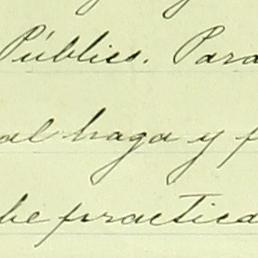 Público. Para
al haga y p
be practica